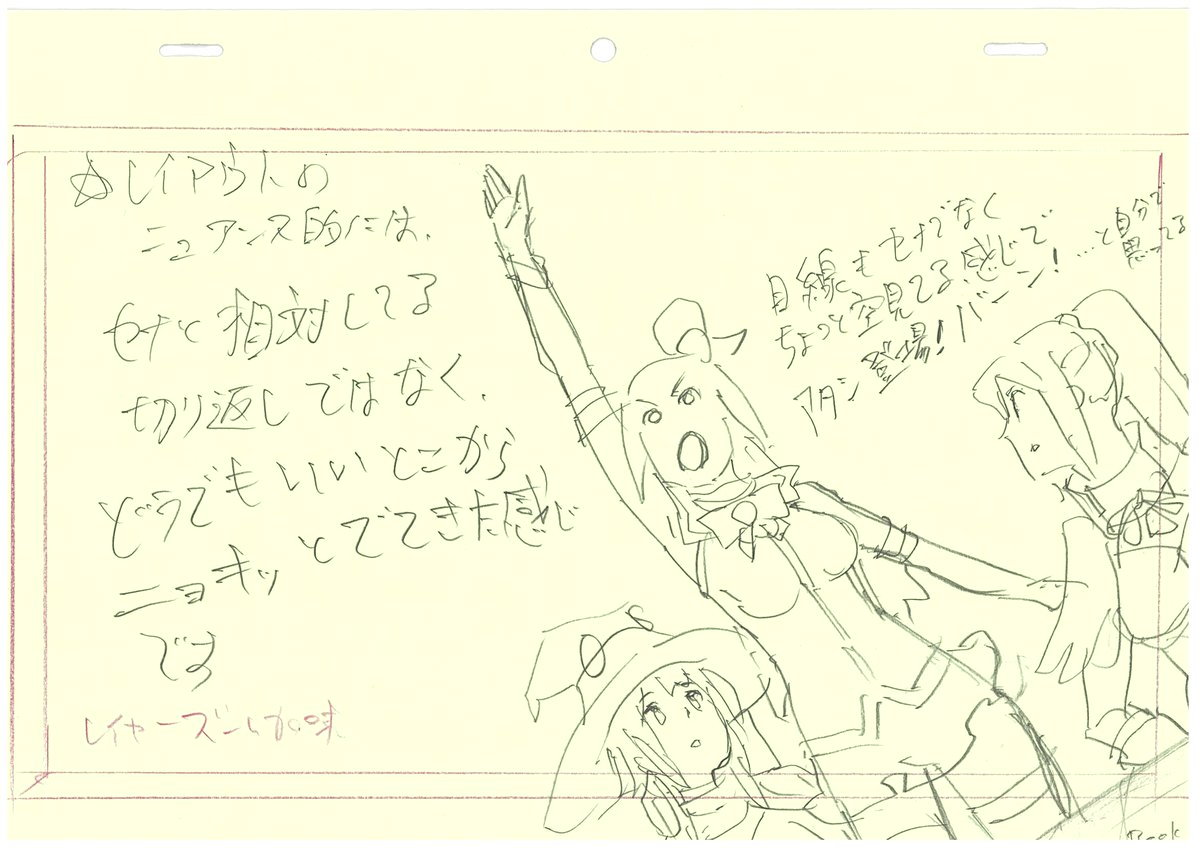 ☆レイアウトの
ニュアンス的には、
セナと相対してる
切り返しではなく、
どうでもいいとこから
ニョキッとでてきた感じ
です
レイヤーズーム気味
目線もセナでなく
ちょっと空見てる感じで
アタシ登場！バーン！…と自分で
思ってる
Book